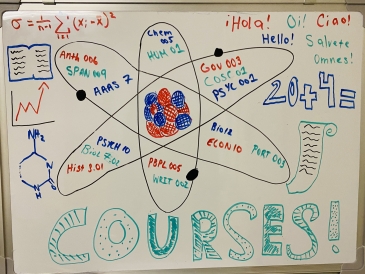 σ = 1/n-1 Σ i=1 (xᵢ - x̄)²
¡Hola! Oi! Ciao!
Hello! Salvete
Omnes!
Chem
005
HUM 01
Anth 006
SPAN 009
AAAS 7
Gov 003
COSC 01
PSYC 001
20+4=
NH₂
N
N
H
O
PSYCH 10
Biol 7.01
Hist 3.01
Bio12
ECON 10
PORT 003
PBPL 005
WRIT 002
COURSES!